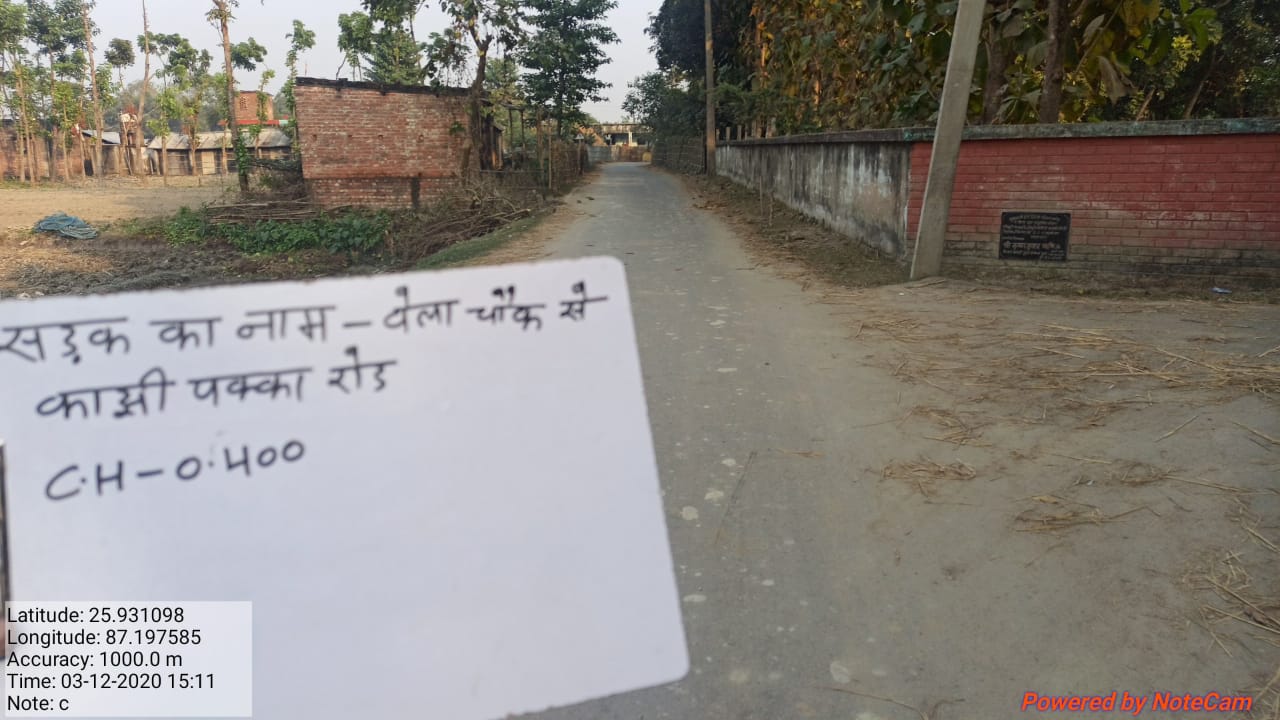 सड़क का नाम – वेला चौक से
काझी पक्का रोड
C.H – 0.400
Latitude: 25.931098
Longitude: 87.197585
Accuracy: 1000.0 m
Time: 03-12-2020 15:11
Note: c
Powered by NoteCam